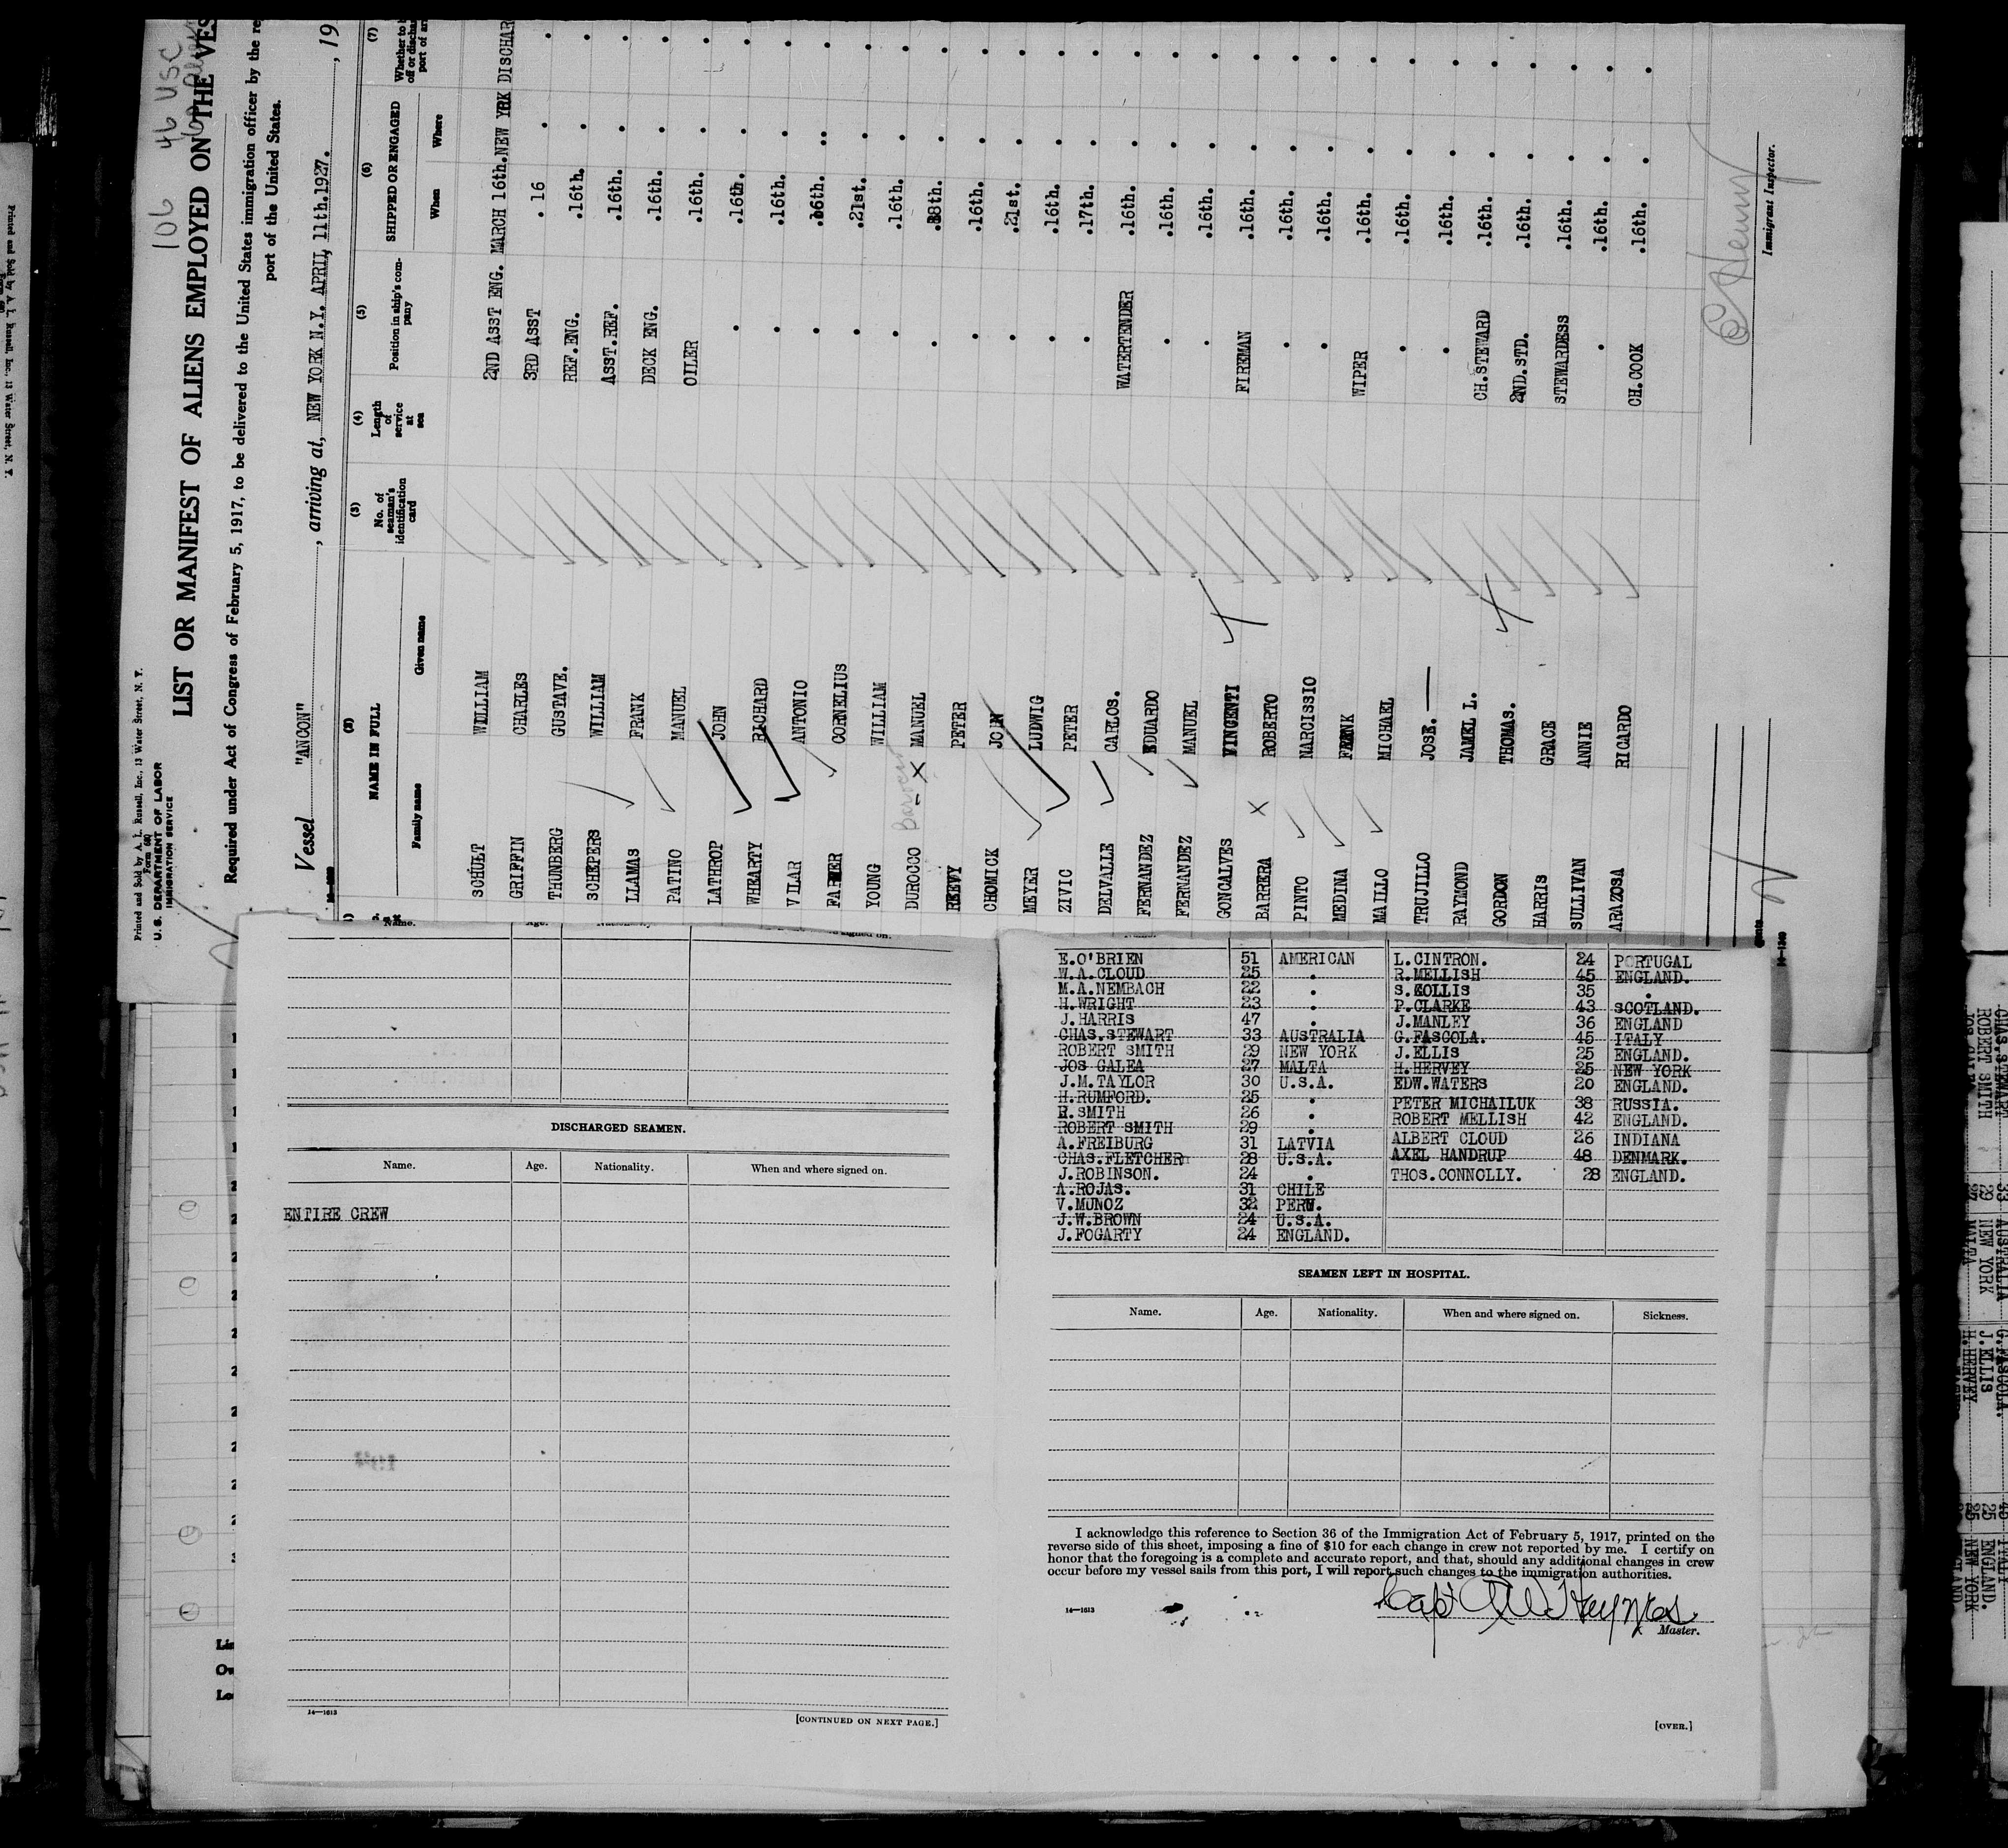 Printed and Sold by A. L. Russell, Inc., 13 Water Street, N. Y.
Form 680
U. S. DEPARTMENT OF LABOR
IMMIGRATION SERVICE
106 46 USC
60
LIST OR MANIFEST OF ALIENS EMPLOYED ON THE VES
Required under Act of Congress of February 5, 1917, to be delivered to the United States immigration officer by the re
port of the United States.
Vessel "ANCON", arriving at, NEW YORK N.Y. APRIL, 11th.1927., 19
(2) (3) (4) (5) (6) (7)
NAME IN FULL No. of seaman's identification card Length of service at sea Position in ship's company SHIPPED OR ENGAGED
Family name Given name When Where
SCHULT WILLIAM 2ND ASST ENG. MARCH 16th. NEW YRK DISCHAR
GRIFFIN CHARLES 3RD ASST . 16 . .
THUNBERG GUSTAVE. REF.ENG. .16th. . .
SCHEPERS WILLIAM ASST.REF. .16th. . .
LLAMAS FRANK DECK ENG. .16th. . .
PATINO MANUEL OILER .16th. . .
LATHROP JOHN . .16th. . .
WHEARTY RICHARD . .16th. . .
VILAR ANTONIO . .16th. . .
FARMER CORNELIUS . .21st. . .
YOUNG WILLIAM . .16th. . .
DUROCCO MANUEL . . .
REEVY PETER . .16th. . .
CHOMICK JOHN . .21st. . .
MEYER LUDWIG . .16th. . .
ZIVIC PETER . .17th. . .
DELVALLE CARLOS. WATERTENDER .16th. . .
FERNANDEZ EDUARDO . .16th. . .
FERNANDEZ MANUEL . .16th. . .
GONCALVES VINCENTI FIREMAN .16th. . .
BARRERA ROBERTO . .16th. . .
PINTO NARCISSIO . .16th. . .
MEDINA FRANK WIPER .16th. . .
MAILLO MICHAEL . .16th. . .
TRUJILLO JOSE. . .16th. . .
RAYMOND JAMEL L. CH.STEWARD .16th. . .
GORDON THOMAS. 2ND.STD. .16th. . .
HARRIS GRACE STEWARDESS .16th. . .
SULLIVAN ANNIE . .16th. . .
ARAZOSA RICARDO CH.COOK .16th. . .
Immigrant Inspector.
14—1240
DISCHARGED SEAMEN.
Name. Age. Nationality. When and where signed on.
ENTIRE CREW
14—1613
[CONTINUED ON NEXT PAGE.]
E.O'BRIEN 51 AMERICAN L.CINTRON. 24 PORTUGAL
W.A.CLOUD 25 . R.MELLISH 45 ENGLAND.
M.A.NEMBACH 22 . S.COLLIS 35 .
H.WRIGHT 23 . P.CLARKE 43 SCOTLAND.
J.HARRIS 47 . J.MANLEY 36 ENGLAND
CHAS.STEWART 33 AUSTRALIA G.FASCOLA. 45 ITALY
ROBERT SMITH 29 NEW YORK J.ELLIS 25 ENGLAND.
JOS GALEA 27 MALTA H.HERVEY 25 NEW YORK
J.M.TAYLOR 30 U.S.A. EDW.WATERS 20 ENGLAND.
H.RUMFORD. 25 . PETER MICHAILUK 38 RUSSIA.
R.SMITH 26 . ROBERT MELLISH 42 ENGLAND.
ROBERT SMITH 29 . ALBERT CLOUD 26 INDIANA
A.FREIBURG 31 LATVIA AXEL HANDRUP 48 DENMARK.
CHAS.FLETCHER 28 U.S.A. THOS.CONNOLLY. 28 ENGLAND.
J.ROBINSON. 24 .
A.ROJAS. 31 CHILE
V.MUNOZ 32 PERU.
J.W.BROWN 24 U.S.A.
J.FOGARTY 24 ENGLAND.
SEAMEN LEFT IN HOSPITAL.
Name. Age. Nationality. When and where signed on. Sickness.
I acknowledge this reference to Section 36 of the Immigration Act of February 5, 1917, printed on the
reverse side of this sheet, imposing a fine of $10 for each change in crew not reported by me. I certify on
honor that the foregoing is a complete and accurate report, and that, should any additional changes in crew
occur before my vessel sails from this port, I will report such changes to the immigration authorities.
14—1613
Master.
[OVER.]